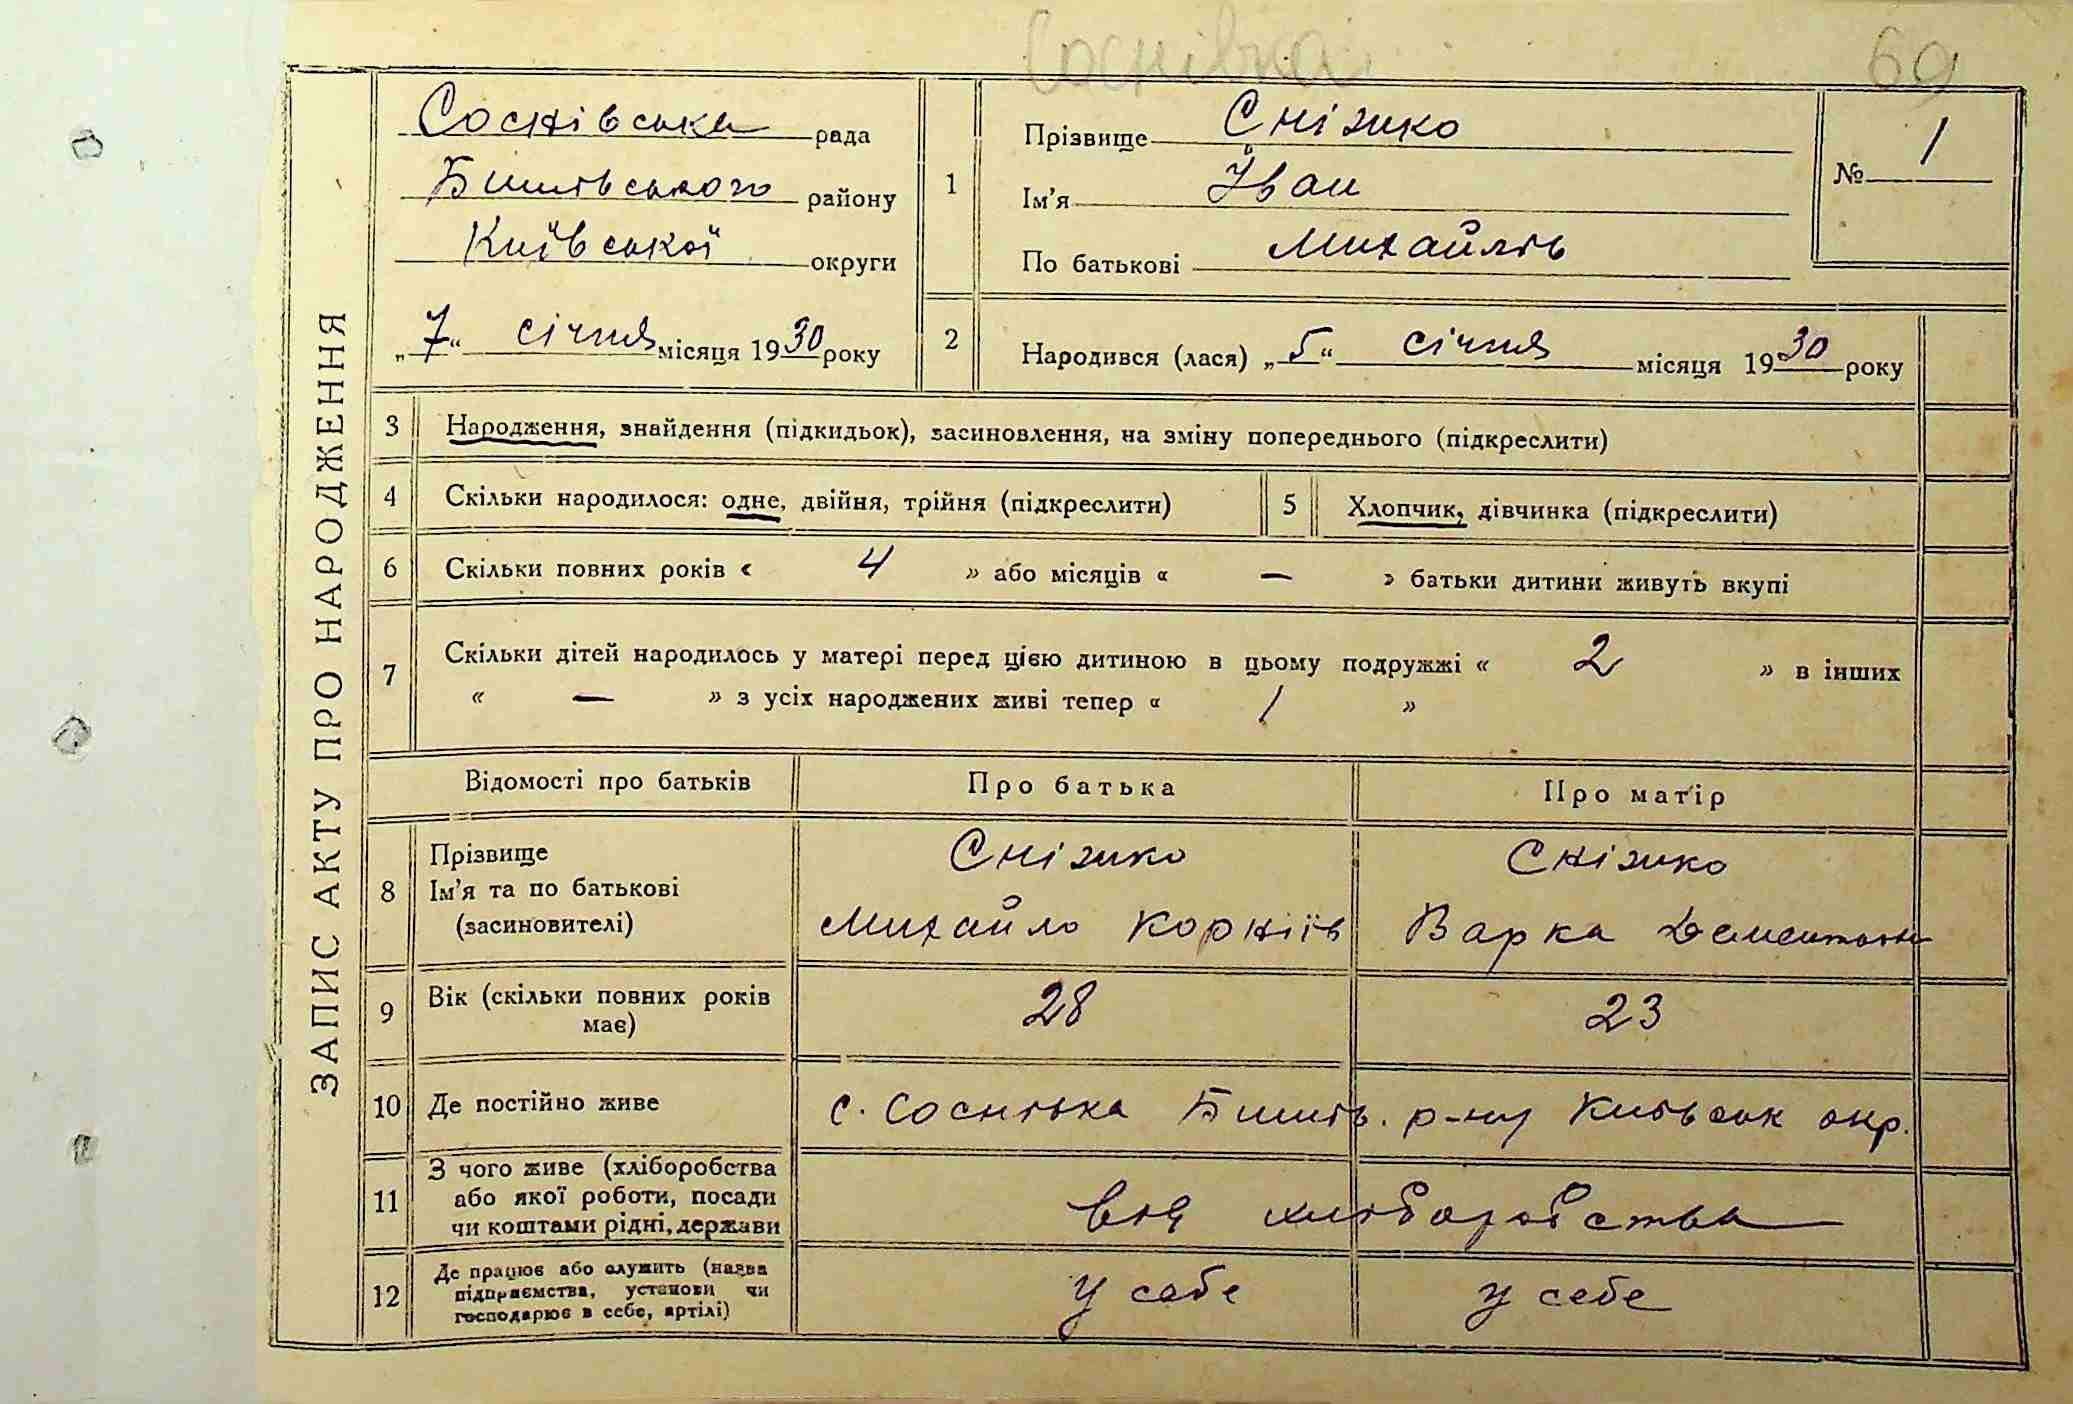 Соснівка
69
ЗАПИС АКТУ ПРО НАРОДЖЕННЯ
Соснівська рада
Бишівського району
Київської округи
„7“ січня місяця 1930 року
1
Прізвище Сніжко
Ім'я Іван
По батькові Михайлів
№ 1
2
Народився (лася) „5“ січня місяця 1930 року
3 Народження, знайдення (підкидьок), засиновлення, на зміну попереднього (підкреслити)
4 Скільки народилося: одне, двійня, трійня (підкреслити)
5 Хлопчик, дівчинка (підкреслити)
6 Скільки повних років « 4 » або місяців « — » батьки дитини живуть вкупі
7 Скільки дітей народилось у матері перед цією дитиною в цьому подружжі « 2 » в інших
« — » з усіх народжених живі тепер « 1 »
Відомості про батьків Про батька Про матір
8
Прізвище
Ім'я та по батькові
(засиновителі)
Сніжко
Михайло Корніїв
Сніжко
Варка
9
Вік (скільки повних років
має)
28 23
10 Де постійно живе
с. Соснівка Бишів. р-ну Київськ окр.
11
З чого живе (хліборобства
або якої роботи, посади
чи коштами рідні, держави
хліборобства
12
Де працює або служить (назва
підприємства, установи чи
господарює в себе, артілі)
у себе у себе